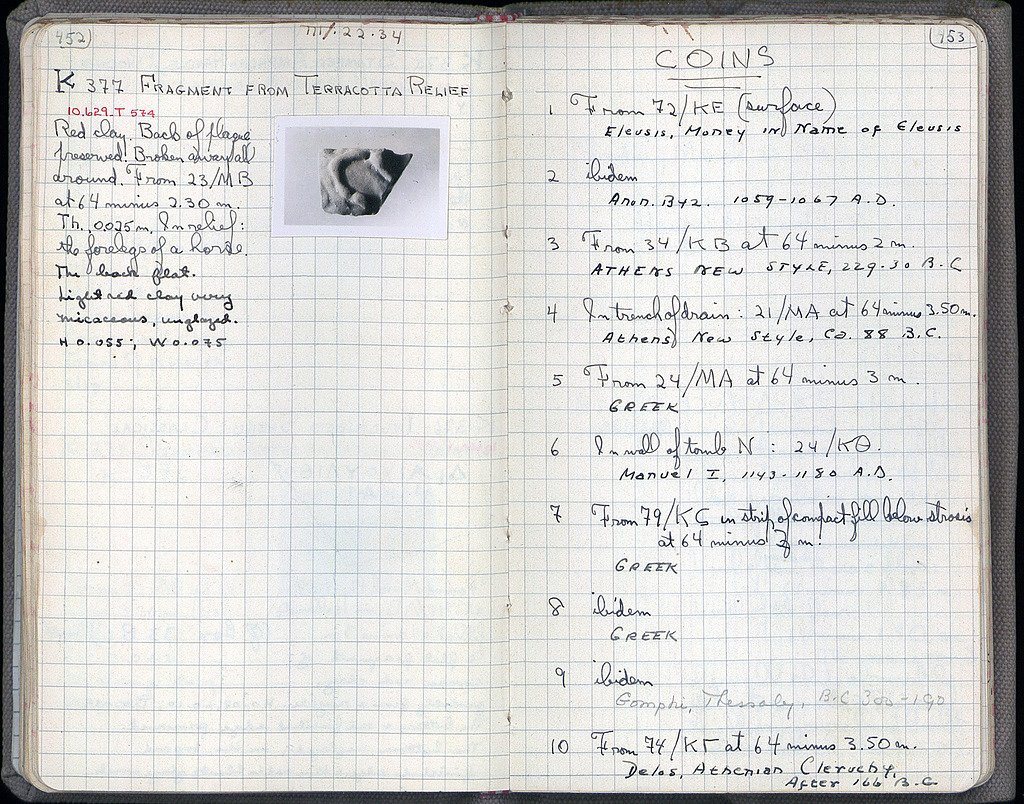 452
III/.22.34
K 377 FRAGMENT FROM TERRACOTTA RELIEF
10.629 T 574
Red clay. Back of plaque
preserved. Broken away all
around. From 23/MB
at 64 minus 2.30 m.
Th. 0.025 m. In relief:
the forelegs of a horse.
The back flat.
Light red clay very
micaceous, unglazed.
H 0.055; W 0.075
453
COINS
1 From 72/KE (surface)
Eleusis, Money in Name of Eleusis
2 ibidem
Anon. Byz. 1059-1067 A.D.
3 From 34/KB at 64 minus 2 m.
ATHENS NEW STYLE, 229-30 B.C
4 In trench of drain: 21/MA at 64 minus 3.50 m.
Athens, New Style, Ca. 88 B.C.
5 From 24/MA at 64 minus 3 m.
GREEK
6 In wall of tomb N: 24/KΘ.
Manuel I, 1143-1180 A.D.
7 From 79/KS in strip of compact fill below strosis
at 64 minus m.
GREEK
8 ibidem
GREEK
9 ibidem
Gomphi, Thessaly, B.C 300-190
10 From 74/KΓ at 64 minus 3.50 m.
Delos, Athenian Cleruchy,
After 166 B.C